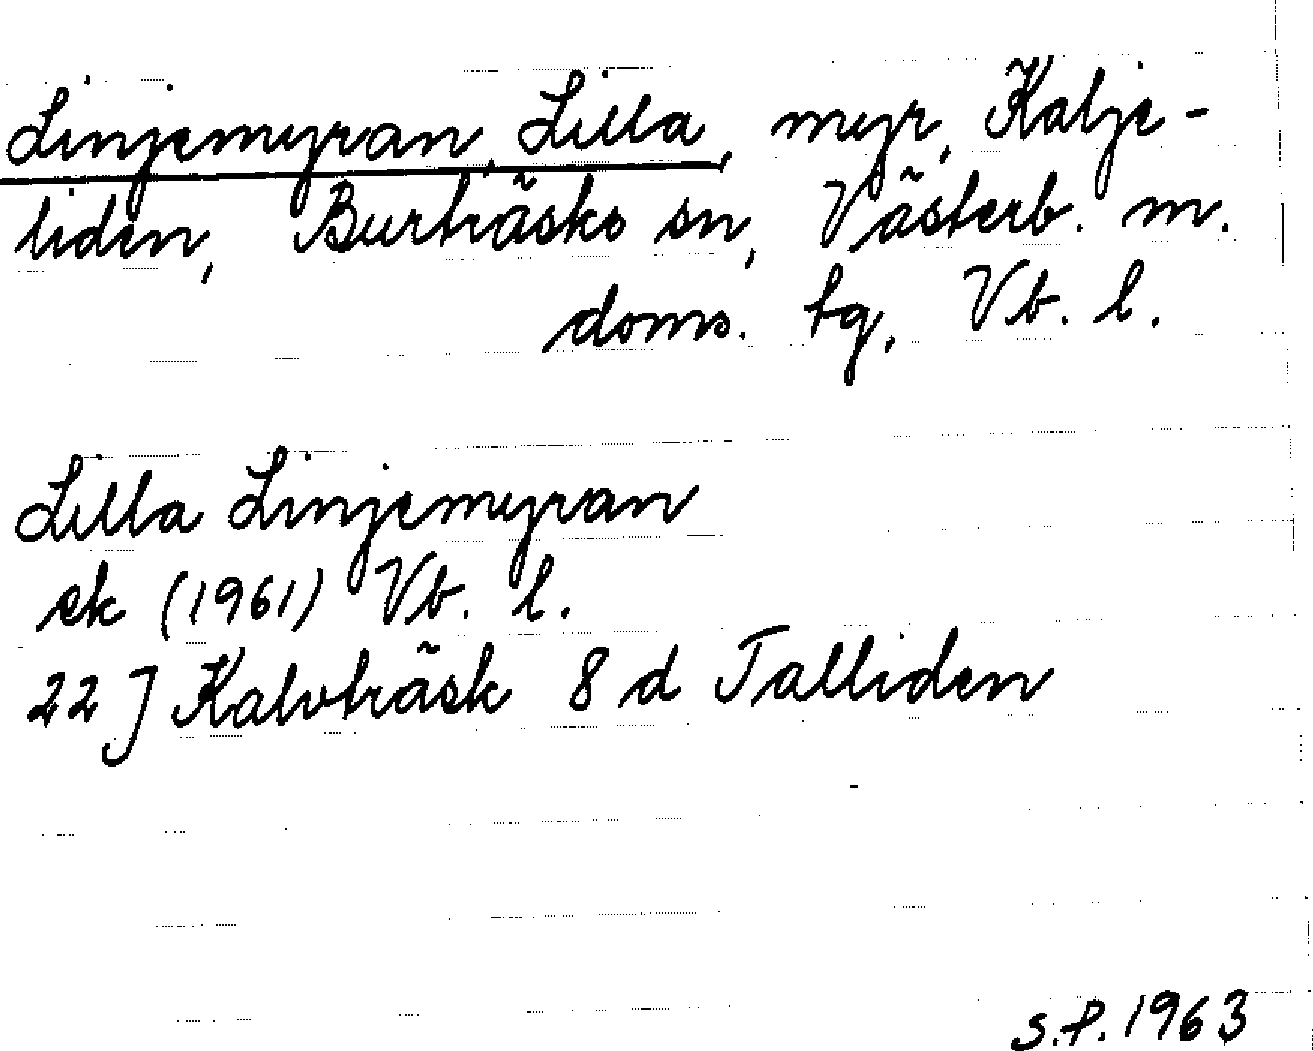 Linjemyran, Lilla, myr, Kalje-
liden, Burträsks sn, Västerb. m.
doms. tg, Vb. l.
Lilla Linjemyran
ek (1961) Vb. l.
22 J Kalvträsk 8 d Talliden
S.P. 1963